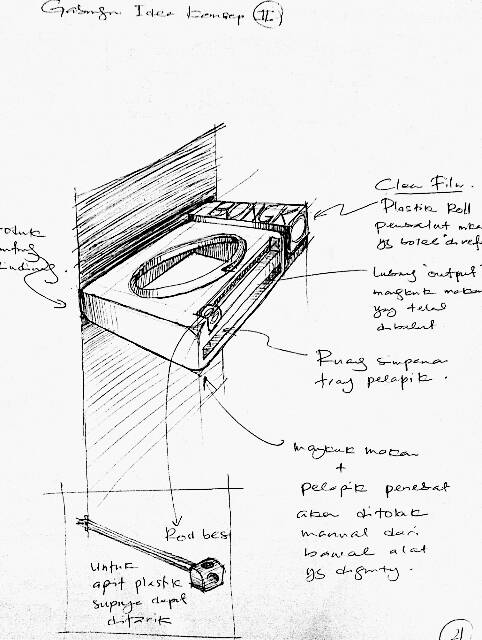 Idea Konsep 11.
Clear Film.
Plastik Roll
pembalut
yg boleh
Lubang "output"
mangkuk makan
yang telah
dibalut
Ruang simpanan
tray pelapik.
mangkuk makan
+
pelapik penebat
akan ditolak
manual dari
bawah alat
yg
Rod besi
untuk
apit plastik
supaya dapat
ditarik